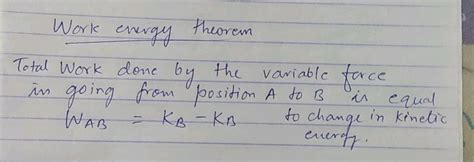 Work energy theorem
Total Work done by the variable force
in going from position A to B is equal
W_AB = K_B - K_B to change in kinetic
energy.